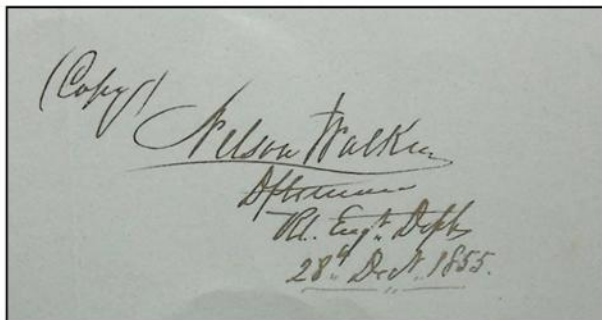 (Copy)
Nelson Walker
Rl. Engr. Dept
28th Decr. 1855.